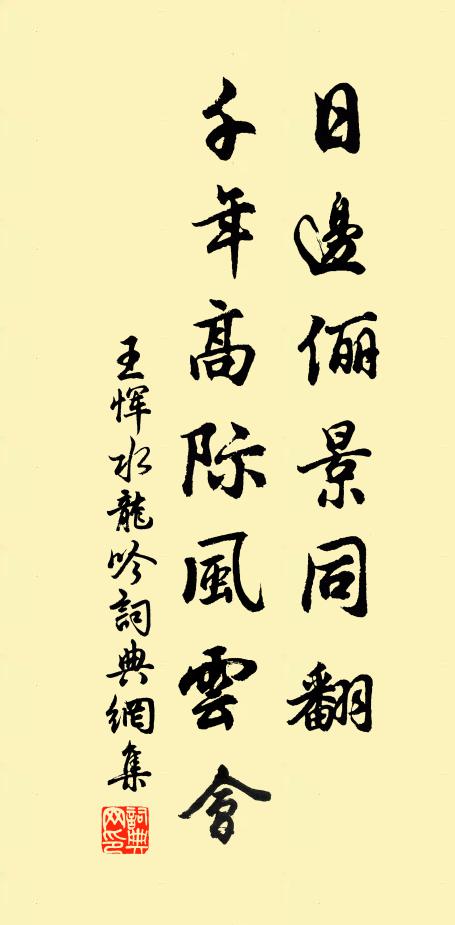 日邊儷景同翻
千年高际風雲會
王恽水龍吟詞典網集
詞典网印